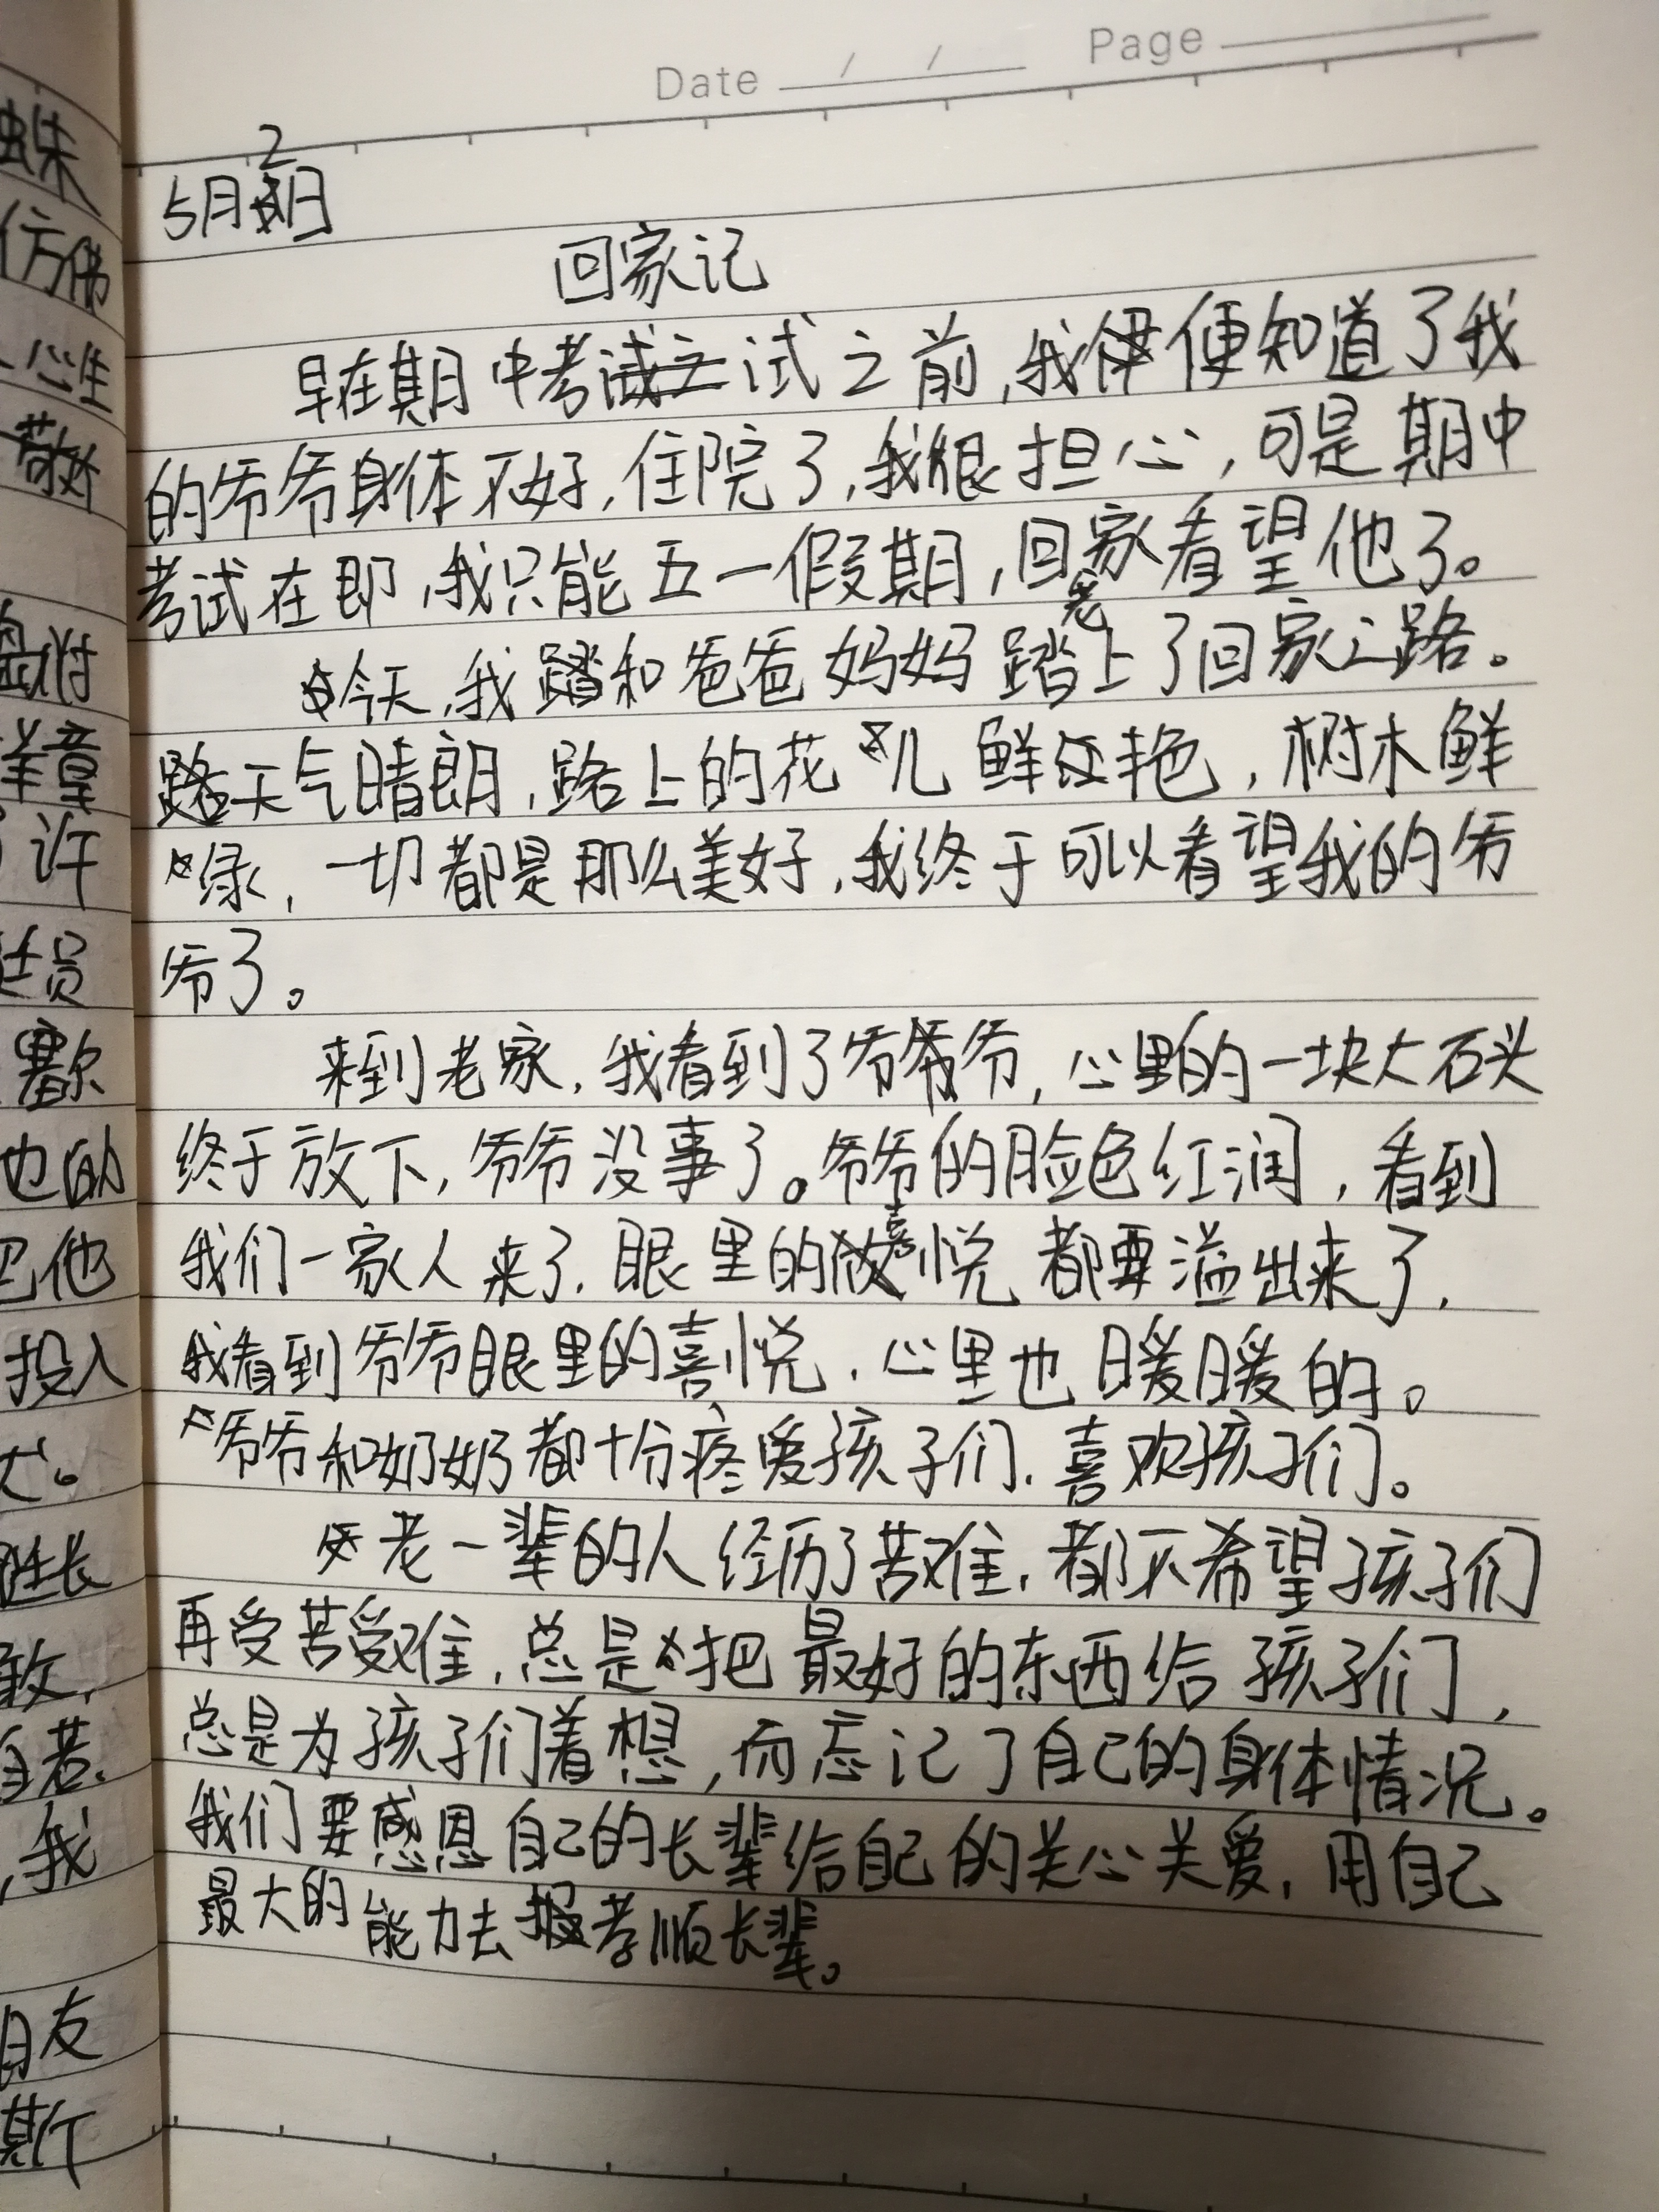 Date / / Page
5月2日
回家记
早在期中考试之前,我便知道了我
的爷爷身体不好,住院了,我很担心,可是期中
考试在即,我只能五一假期,回家看望他了。
今天,我和爸爸妈妈踏上了回老家之路。
天气晴朗,路上的花儿鲜艳,树木鲜
绿,一切都是那么美好,我终于可以看望我的爷
爷了。
来到老家,我看到了爷爷,心里的一块大石头
终于放下,爷爷没事了。爷爷的脸色红润,看到
我们一家人来了,眼里的喜悦都要溢出来了,
我看到爷爷眼里的喜悦,心里也暖暖的。
爷爷和奶奶都十分疼爱孩子们,喜欢孩子们。
老一辈的人经历了苦难,都不希望孩子们
再受苦受难,总是把最好的东西给孩子们,
总是为孩子们着想,而忘记了自己的身体情况。
我们要感恩自己的长辈给自己的关心关爱,用自己
最大的能力去孝顺长辈。